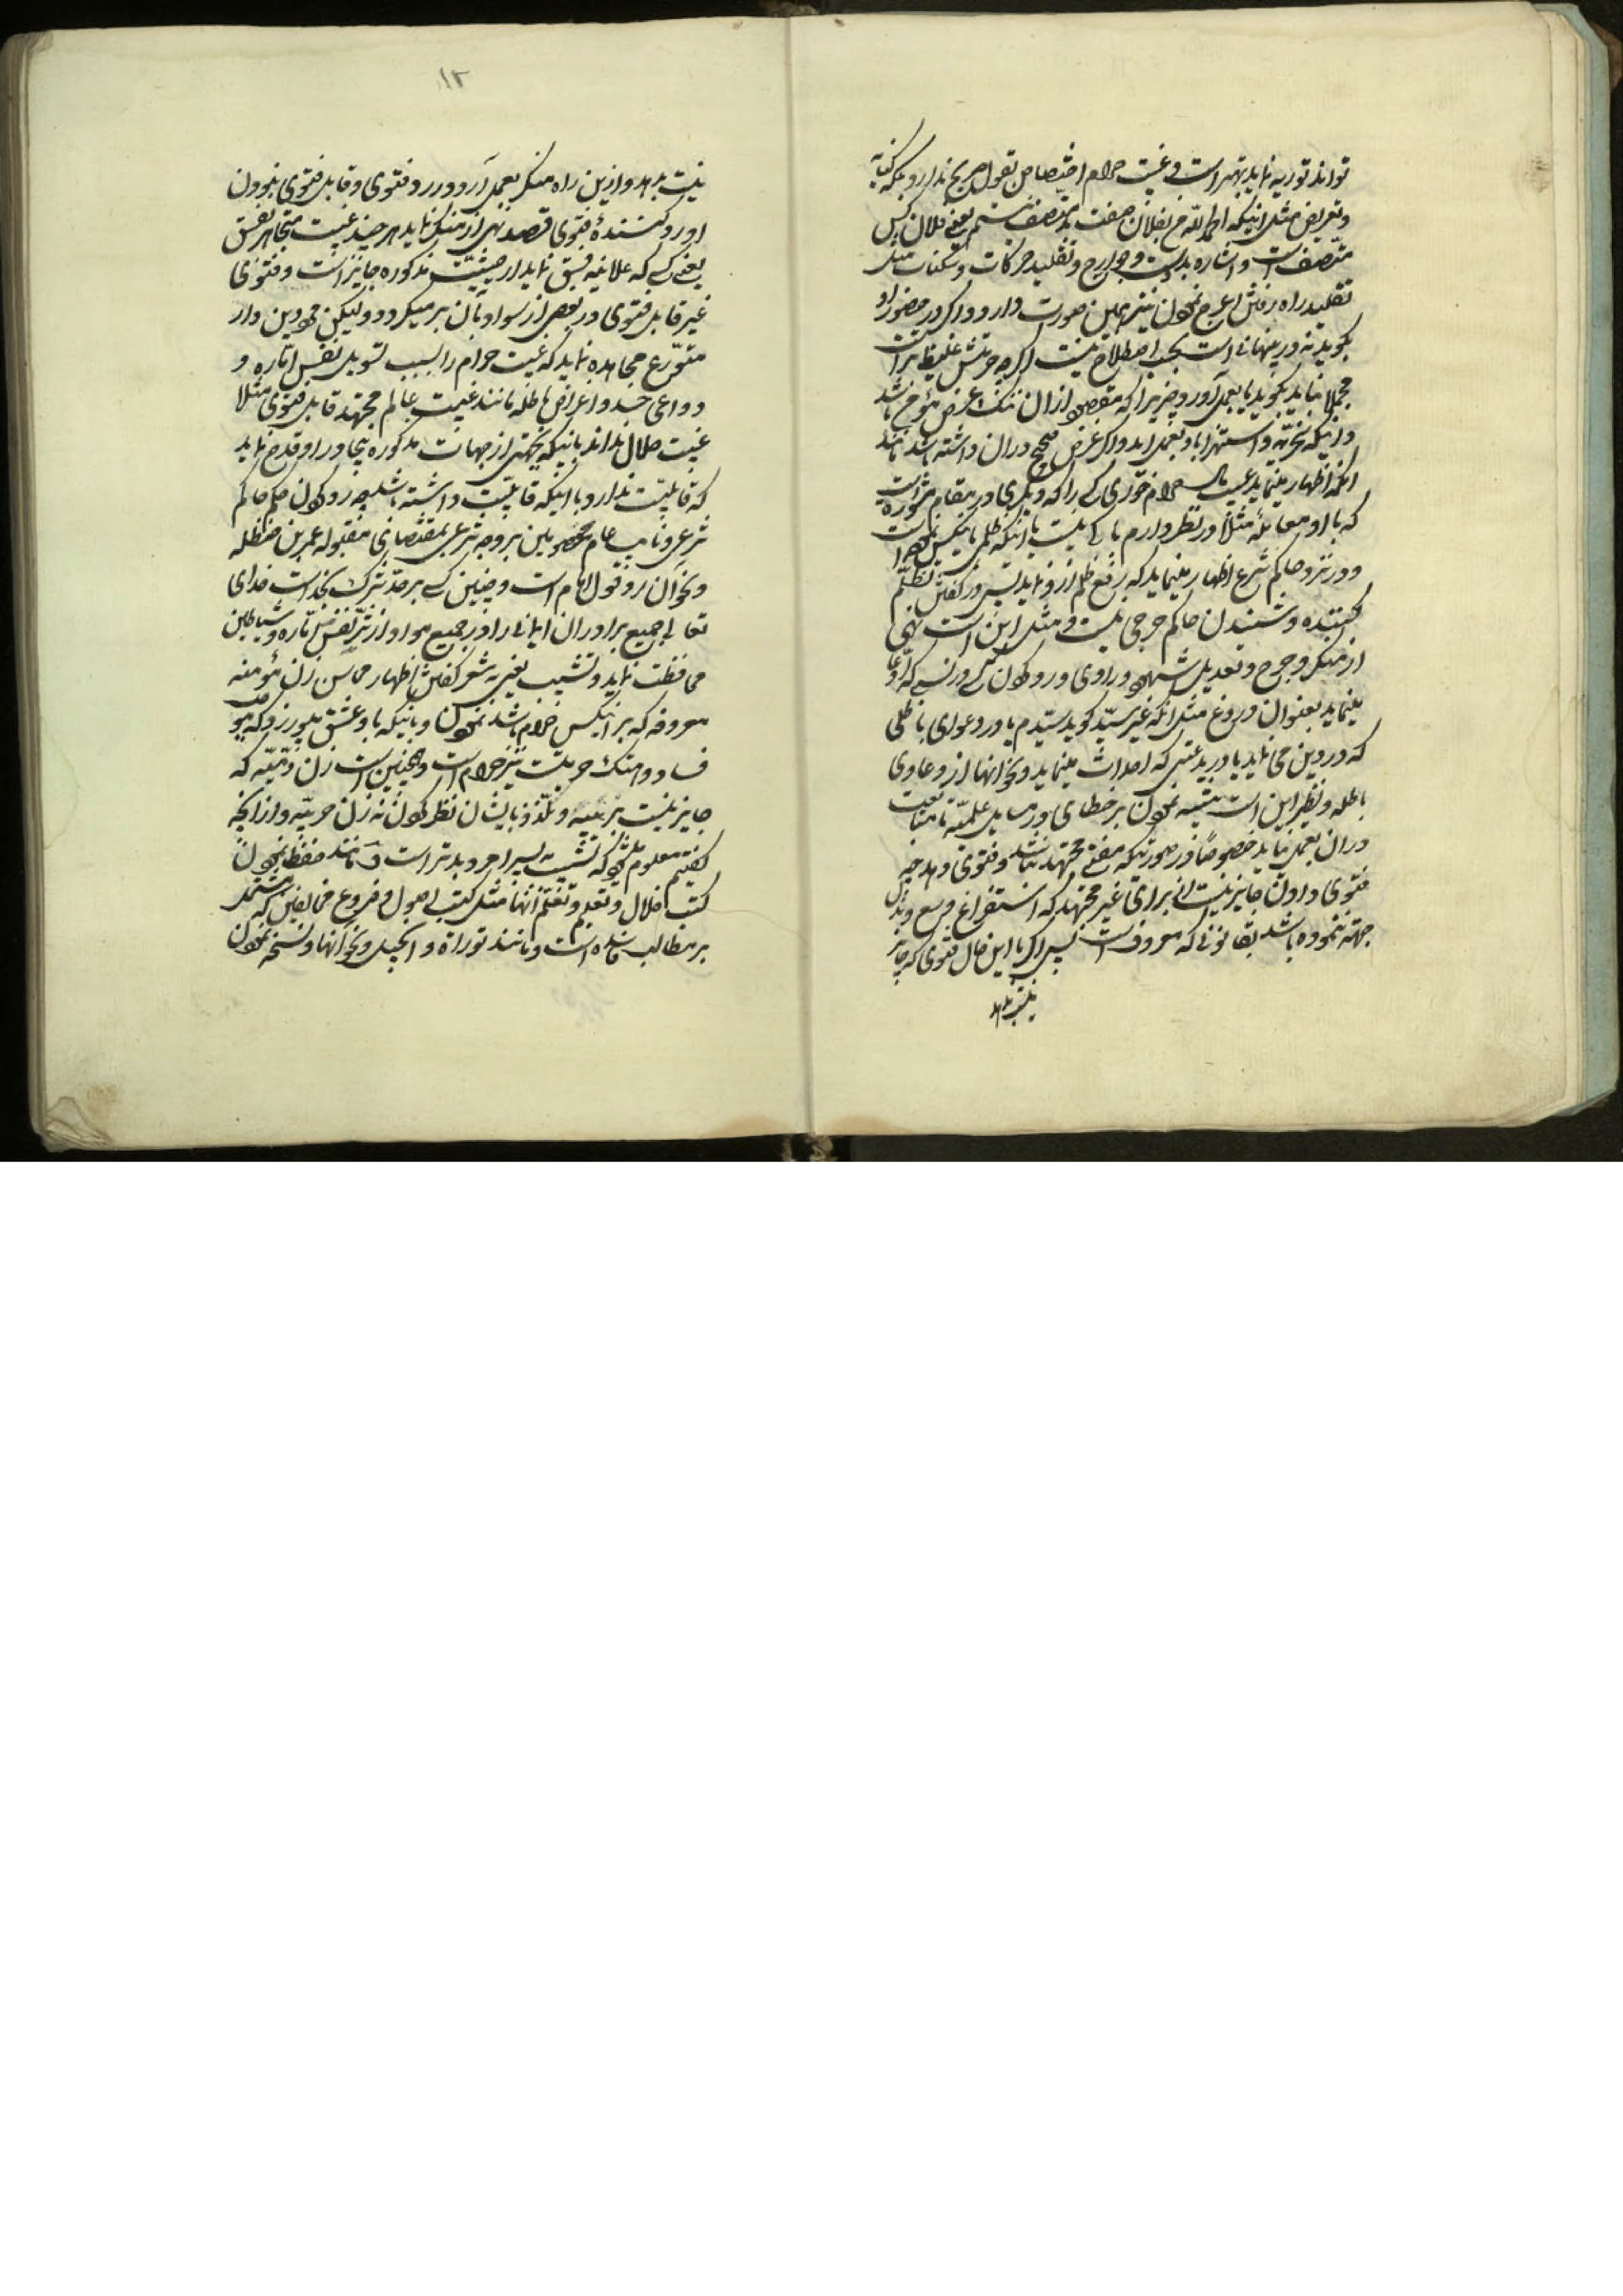 تواند توریه نماید بهتر است و غیبت حرام اختصاص بقول صریح ندارد بلکه کنایه
و تعریض مثل اینکه الحمد لله من بفلان صفت بد متصف نیستم یعنی فلان کس
متصف است و اشاره بدست و جوارح و تقلید حرکات و سکنات مثل
تقلید راه رفتن اعرج نمودن نیز همین صورت دارد و اگر در حضور او
بگوید نه در پنهانی است بحسب اصطلاح غیبت نیست اگر چه حرمتش غلیظتر است
مجملا نباید بگوید یا بعمل آورد چیزیرا که مقصود از آن هتک عرض مؤمن باشد
و اینکه سخریه و استهزا باو بعمل آید و اگر غرض صحیح در آن داشته باشد مانند
آنکه اظهار مینماید عیب حرام خوری کسی را که دیگری در مقام مشورت
که با او معامله مثلا در نظر دارم باکی نیست یا اینکه ظلمی باینکس نموده است
و در نزد حاکم شرع اظهار مینماید که رفع ظلم ازو نماید پس در گفتن تظلم
کننده و شنیدن حاکم حرجی نیست و مثل این است نهی
از منکر و جرح و تعدیل شهود و راوی و رد کردن کسی در نسبی که ادعا
مینماید بعنوان دروغ مثل آنکه غیر سید گوید سیدم یا در دعوای باطلی
که در دین می نماید یا در بدعتی که احداث مینماید و نحو آنها از دعاوی
باطله و نظیر این است تنبیه نمودن بر خطای در مسایل علمیه تا متابعت
در آن بعمل نیاید خصوصا در صورتیکه مفتی مجتهد نباشد و فتوی دهد چه
فتوی دادن جایز نیست از برای غیر مجتهد که استفراغ وسع و بذل
جهد ننموده باشد بقانونی که معروف است پس اگر با این حال فتوی که جایز
نیست بدهد
۱۲
نیست بدهد و ازین راه منکر بعمل آرد و رد فتوی و قابل فتوی نبودن
او رد کنندهٔ فتوی قصد نهی از منکر نماید هر چند غیبت متجاهر بفسق
یعنی کسی که علانیه فسق نماید از حیثیت مذکوره جایز است و فتوی
غیر قابل فتوی در بعضی از سواد بآن بر میگردد و لیکن چون دین دار
متورع مجاهده نماید که غیبت حرام را بسبب تسویل نفس اماره و
دواعی حسد و اغراض باطله مانند غیبت عالم مجتهد قابل فتوی مثلا
غیبت حلال نداند باینکه بجهتی از جهات مذکوره بیجا در او قدح نماید
که قابلیت ندارد با اینکه قابلیت داشته باشد چه رد کردن حکم حاکم
شرعی و نایب عام معصومین بر وجه شرعی بمقتضای مقبوله عمر بن حنظله
و نحو آن رد قول امام است و چنین کسی بر حد شرک بخداست خدای
تعالی جمیع برادران ایمانی را در جمیع مواد از شر نفس اماره و شیاطین
محافظت نماید و تشبیب یعنی به شعر گفتن اظهار محاسن زن مؤمنه
معروفه که بر اینکس حرام باشد نمودن و باینکه باو عشق میورزد که موجب
فساد و هتک حرمتست نیز حرام است و همچنین است زن ذمیه که
جایز نیست بر تشبیب و تلذذ بایشان نظر کردن نه زن حربیه و از آنچه
گفتیم معلوم میشود که تشبیب به پسر امرد بدتر است و مانند حفظ نمودن
کتب ضلال و تعلیم و تعلم آنها مثل کتب اصول و فروع مخالفین که مشتمل
بر مطالب فاسده است و مانند توراة و انجیل و نحو آنها و نسخه نمودن